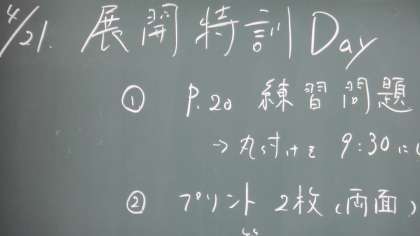 4/21. 展開特訓Day
① P.20 練習問題
→ 丸付けを 9:30に
② プリント 2枚(両面)